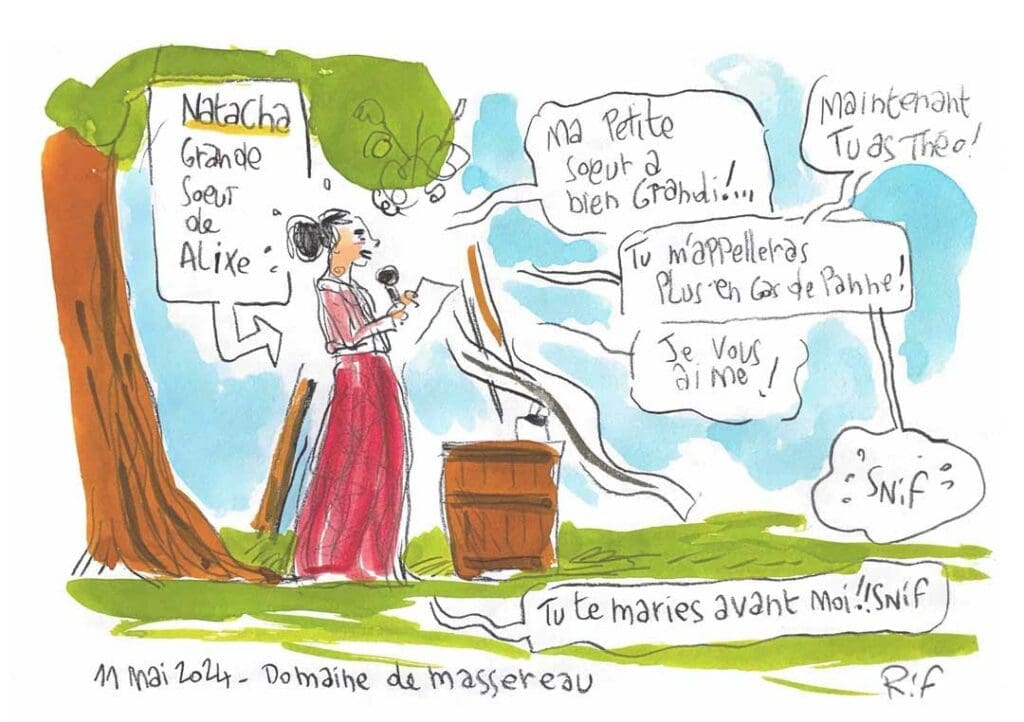 Natacha
Grande
Soeur
de
Alixe !
Ma Petite
soeur a
bien Grandi!...
Maintenant
Tu as Théo!
Tu m'appelleras
Plus en Cas de Panne!
Je Vous
aime !
SNiF
Tu te maries avant Moi!!SNiF
11 Mai 2024- Domaine de massereau
Rif